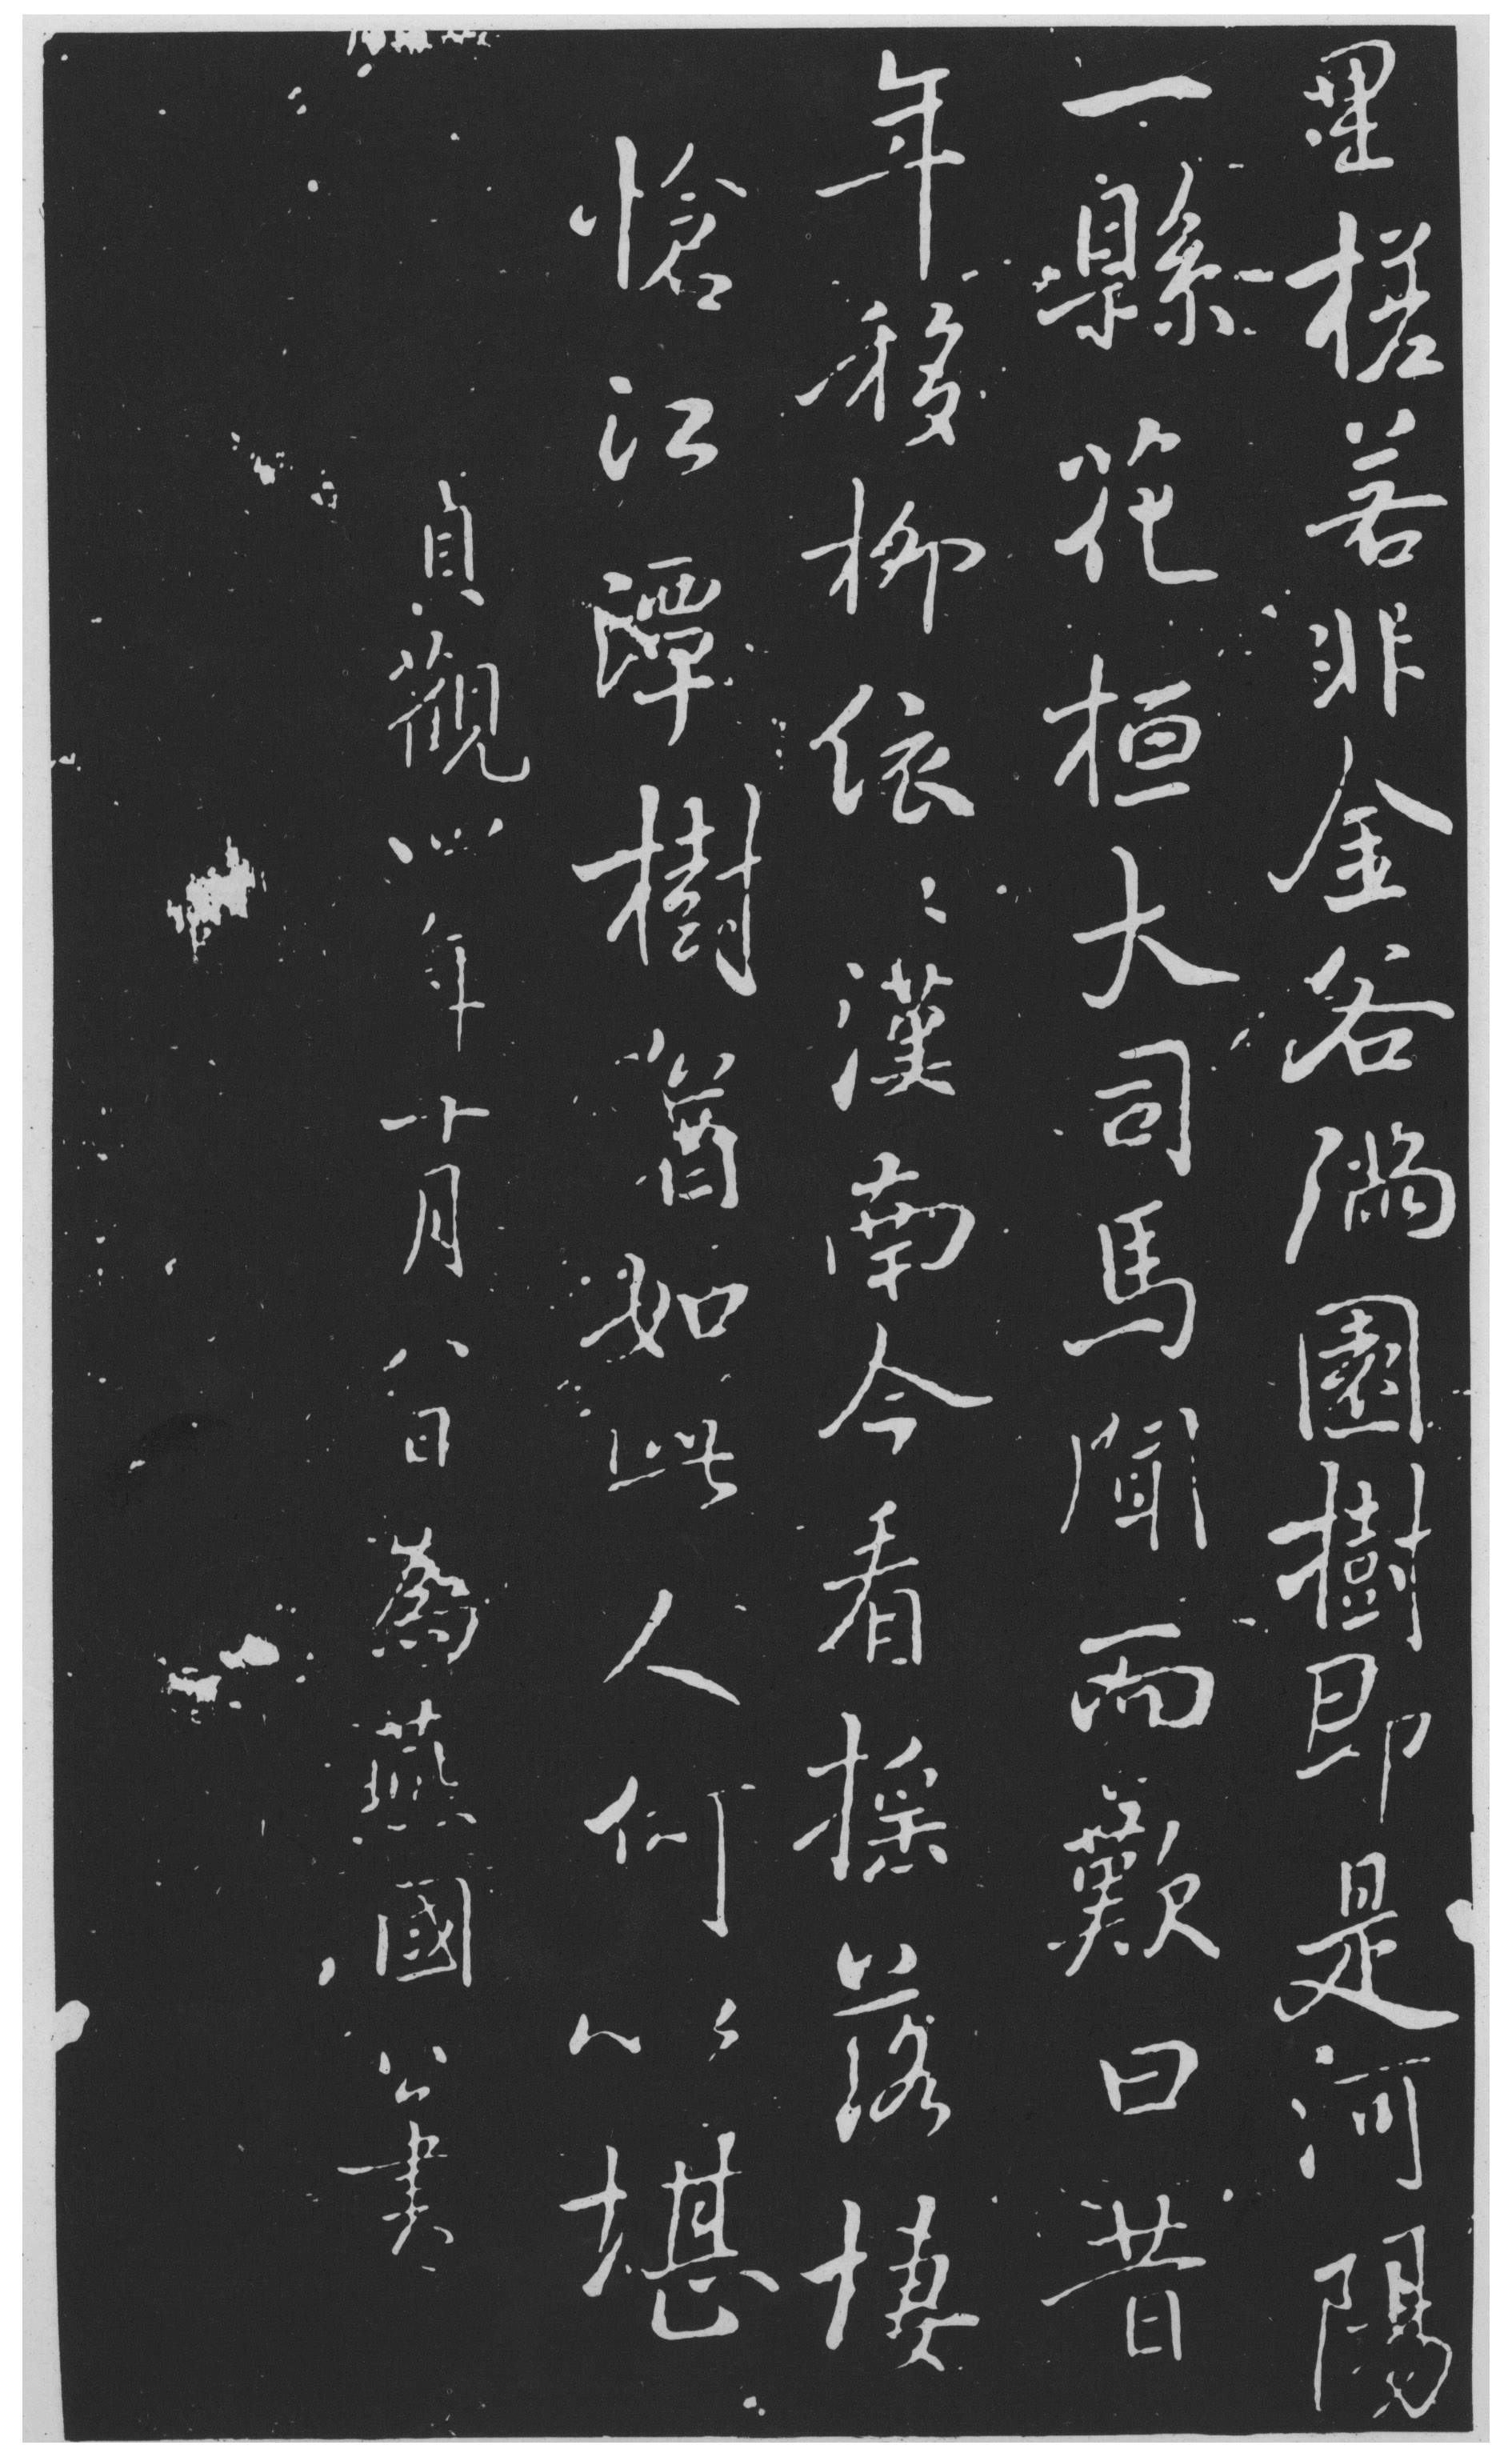 里槎若非金谷滿園樹即是河陽
一縣花桓大司馬聞而歎曰昔
年移柳依〻漢南今看搖落悽
愴江潭樹猶如此人何以堪
貞觀四年十月八日為燕國公書